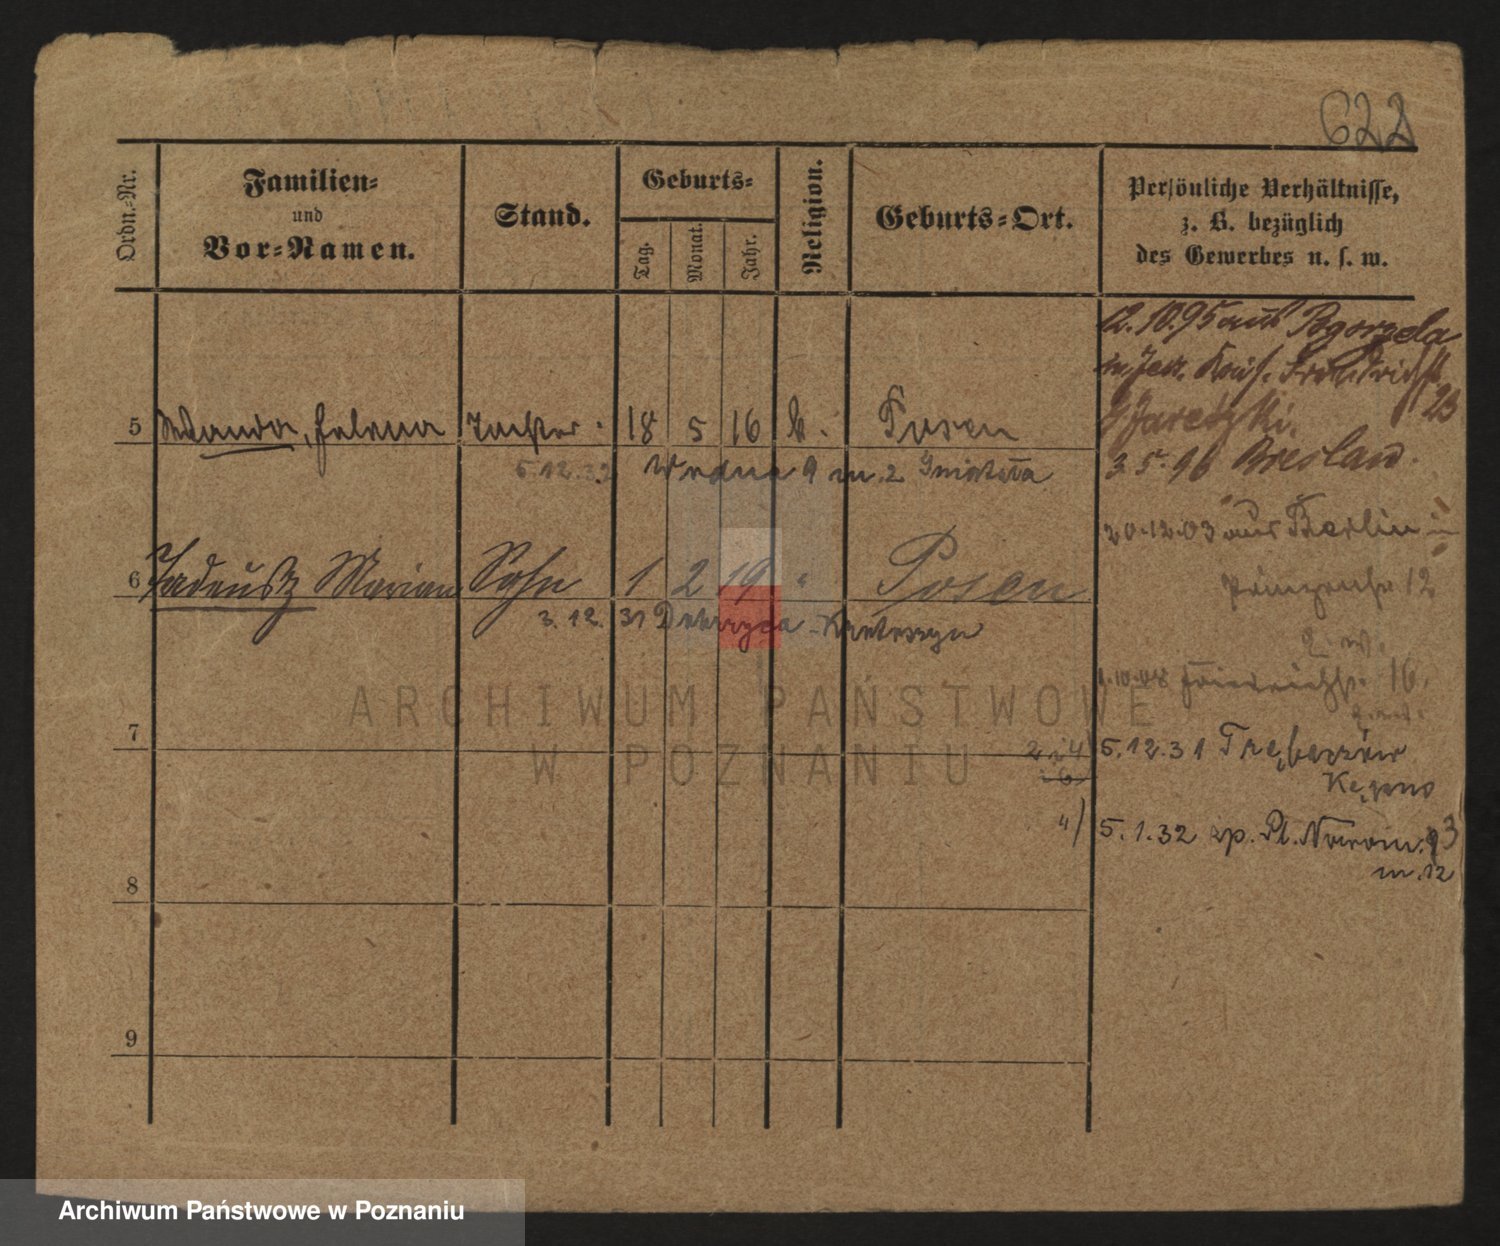 622
Ordn.-Nr.
Familien-
und
Vor-Namen.
Stand.
Geburts-
Tag.
Monat.
Jahr.
Religion.
Geburts-Ort.
Persönliche Verhältnisse,
z. B. bezüglich
des Gewerbes u. s. w.
12.10.95 aus Pogorzela
23
3.5.96 Breslau.
5 Wanda, Helena Tochter. 18 5 16 k. Posen
5.12.32 Wodna 9 m. 2
20.12.03 aus Berlin
12
6 Tadeusz Marian Sohn 1 2 19 " Posen
3.12.31 Dobrzyca - Krotoszyn
z. w.
1.10.08 Friedrichstr. 16.
7
2 i 4
i 6
5.12.31 Trębaczów
Kępno
4/ 5.1.32 sp. Pl. Nowom. 93
m. 12
8
9
ARCHIWUM PAŃSTWOWE
W POZNANIU
Archiwum Państwowe w Poznaniu